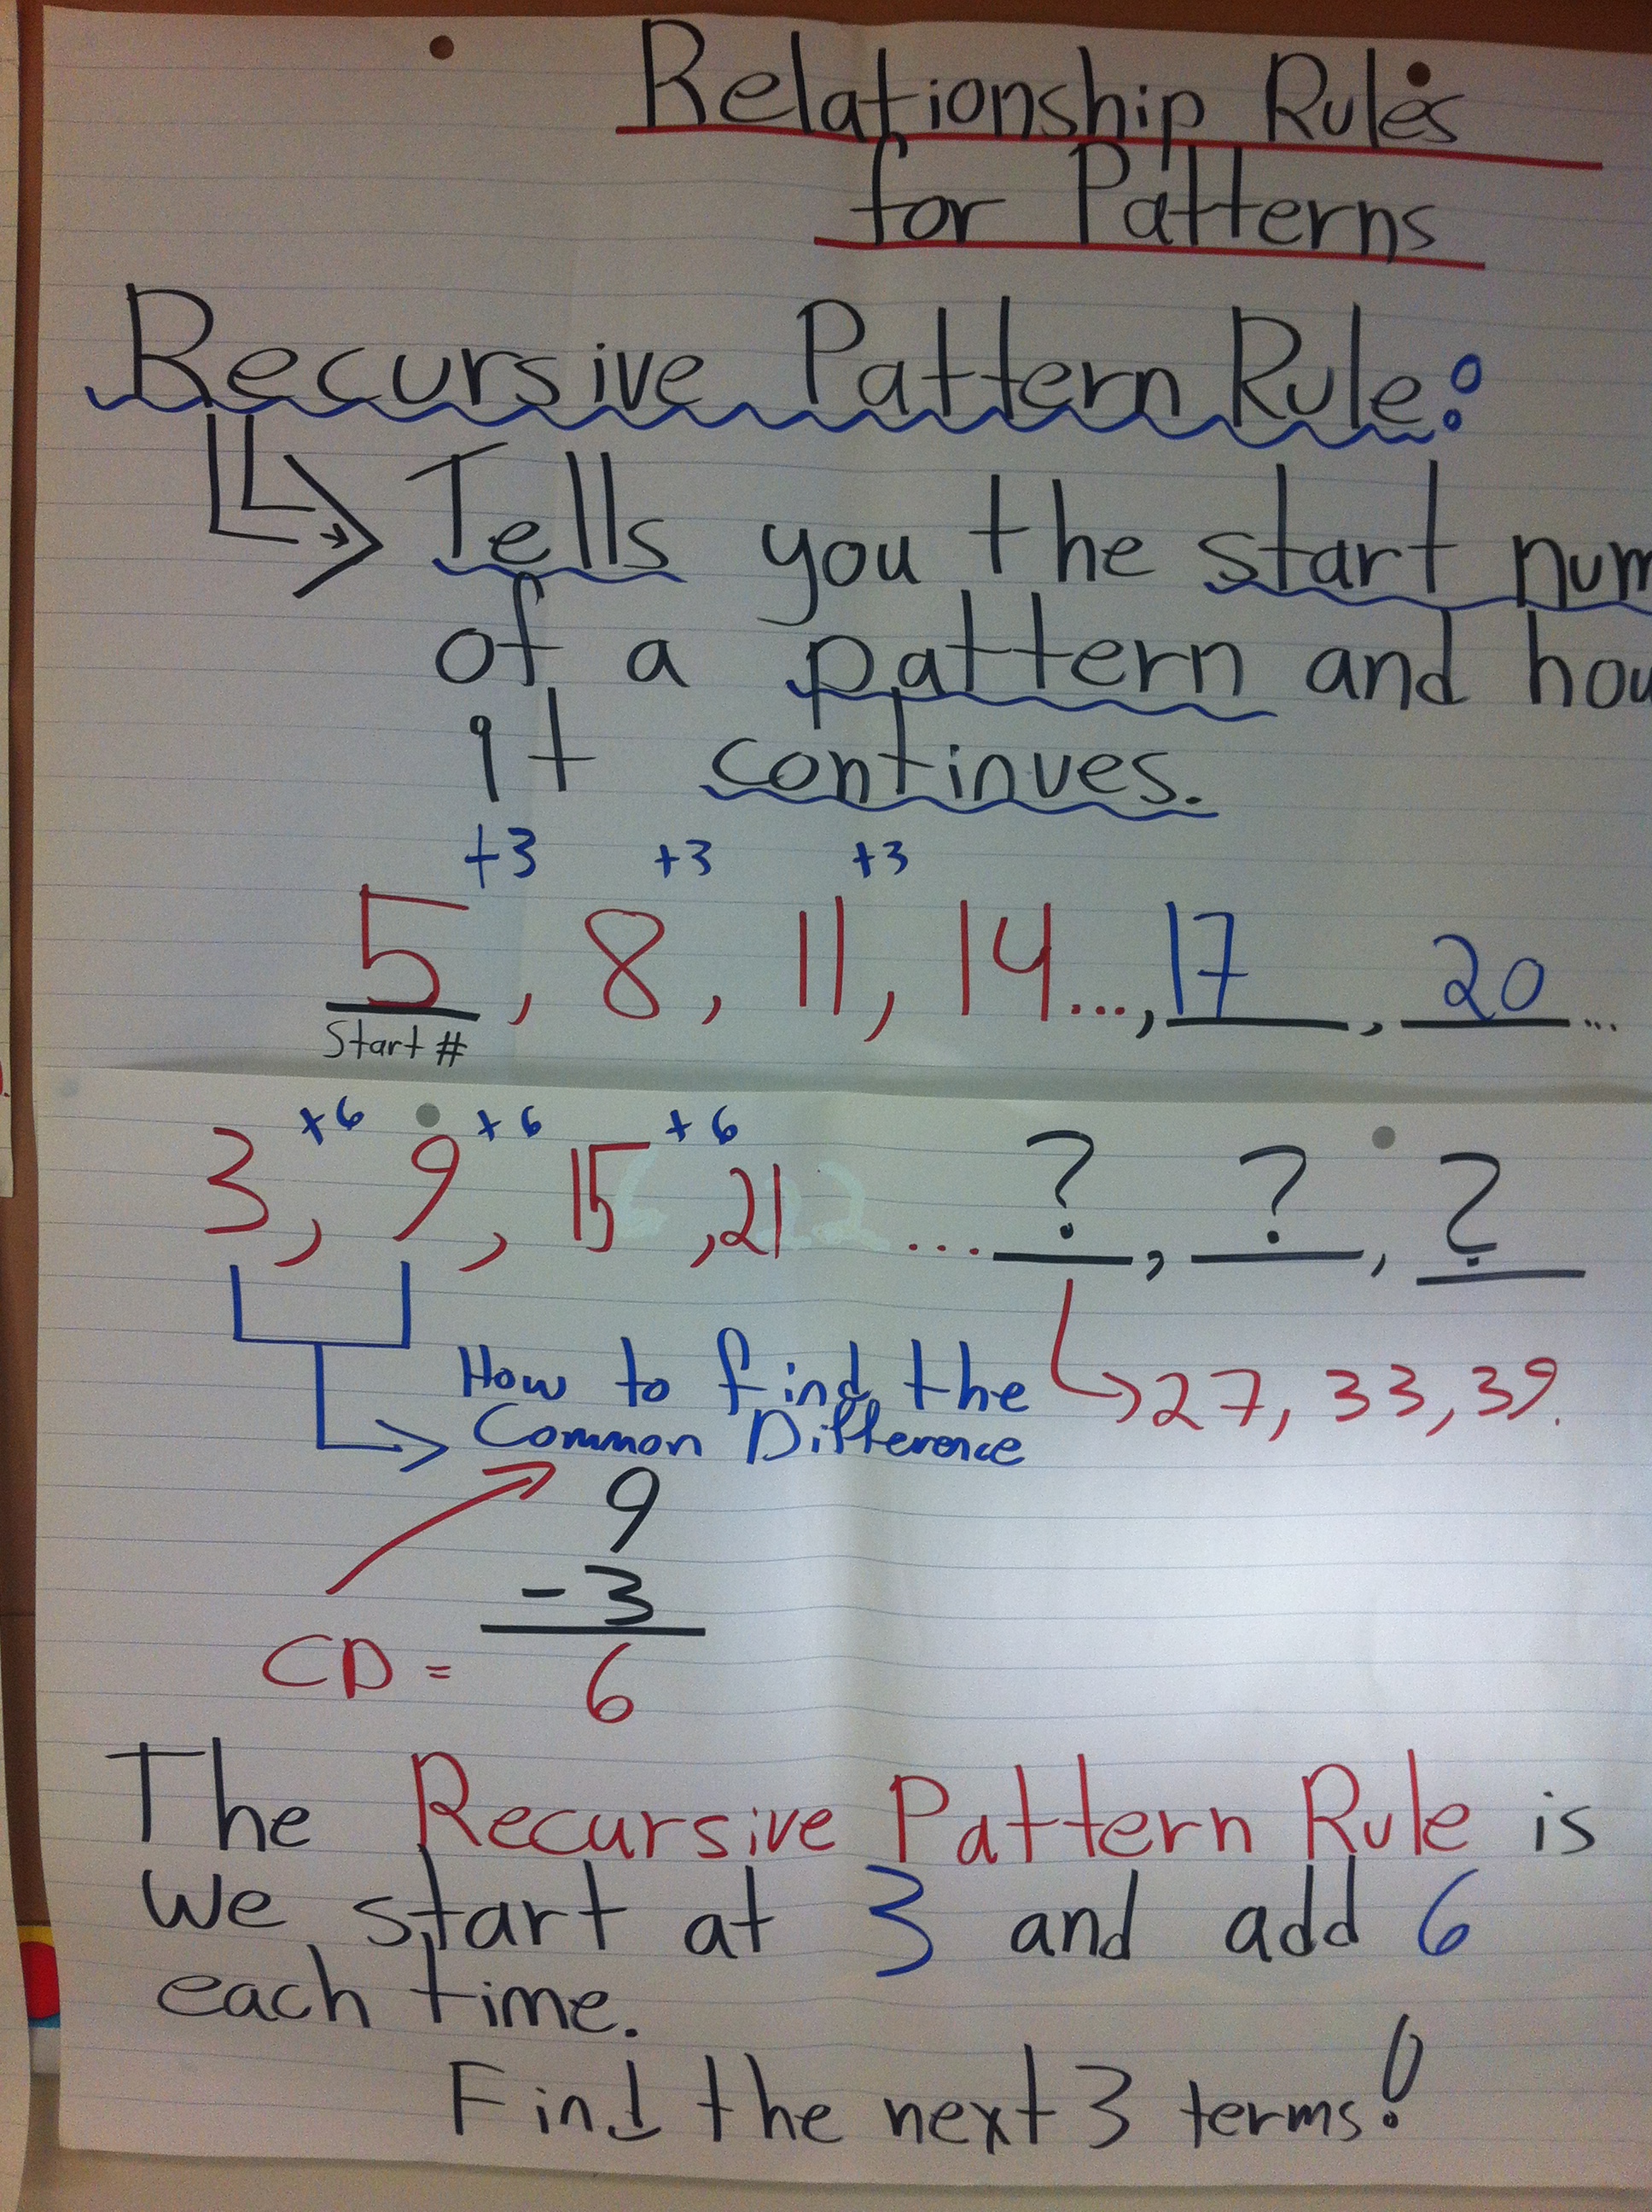 Relationship Rules
for Patterns
Recursive Pattern Rule:
Tells you the start num
of a pattern and how
it continues.
+3 +3 +3
5, 8, 11, 14..., 17, 20...
Start #
+6 +6 +6
3, 9, 15, 21 ... ?, ?, ?
How to find the
27, 33, 39.
Common Difference
9
-3
CD = 6
The Recursive Pattern Rule is
We start at 3 and add 6
each time.
Find the next 3 terms!